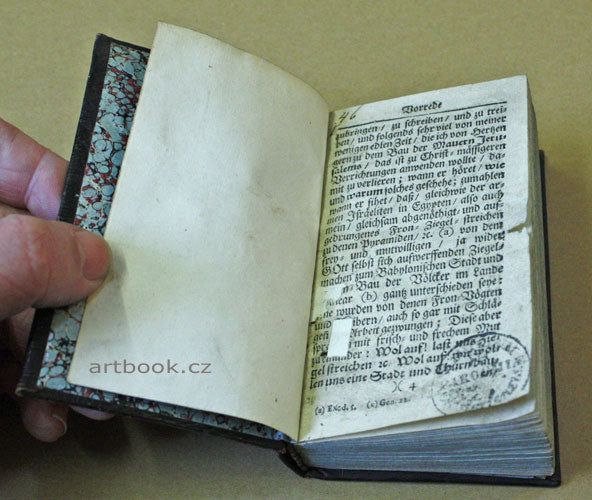 46
Vorrede
zubringen / zu schreiben / und zu trei-
ben / und folgends sehr viel von meiner
wenigen edlen Zeit / die ich von Hertzen
gern zu dem Bau der Mauern Jeru-
salems / das ist zu Christ-mässigeren
Verrichtungen anwenden wollte / da-
mit zu verlieren; wann er höret / wie
und warum solches geschehe; zumahlen
wann er sihet / daß / gleichwie der ar-
men Israeliten in Egypten / also auch
mein / gleichsam abgenöthigt- und auf-
gedrungenes Fron- Ziegel- streichen
zu denen Pyramiden / ꝛc. (a) von dem
frey- und mutwilligen / ja wider
GOtt selbst sich aufwerffenden Ziegel-
machen zum Babylonischen Stadt und
Bau der Völcker im Lande
(b) gantz unterschieden seye:
wurden von denen Fron-Vögten
und / auch so gar mit Schlä-
Arbeit gezwungen; Diese aber
mit frisch- und frechem Mut
einander: Wol auf! laßt uns Zie-
gel streichen ꝛc. Wol auf
len uns eine Stadt und Thurn
)( 4
(a) Exod. 5. Gen. 11.
artbook.cz